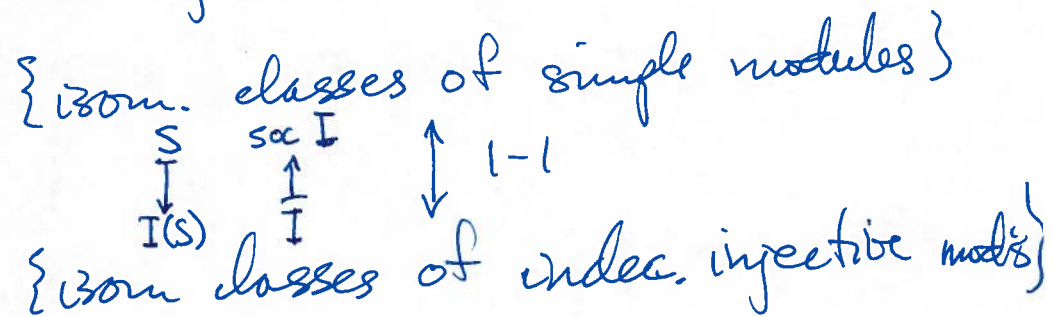 {isom. classes of simple modules}
S soc I
↧ ↥ ↕ 1-1
I(S) I
{isom classes of indec. injective mods}